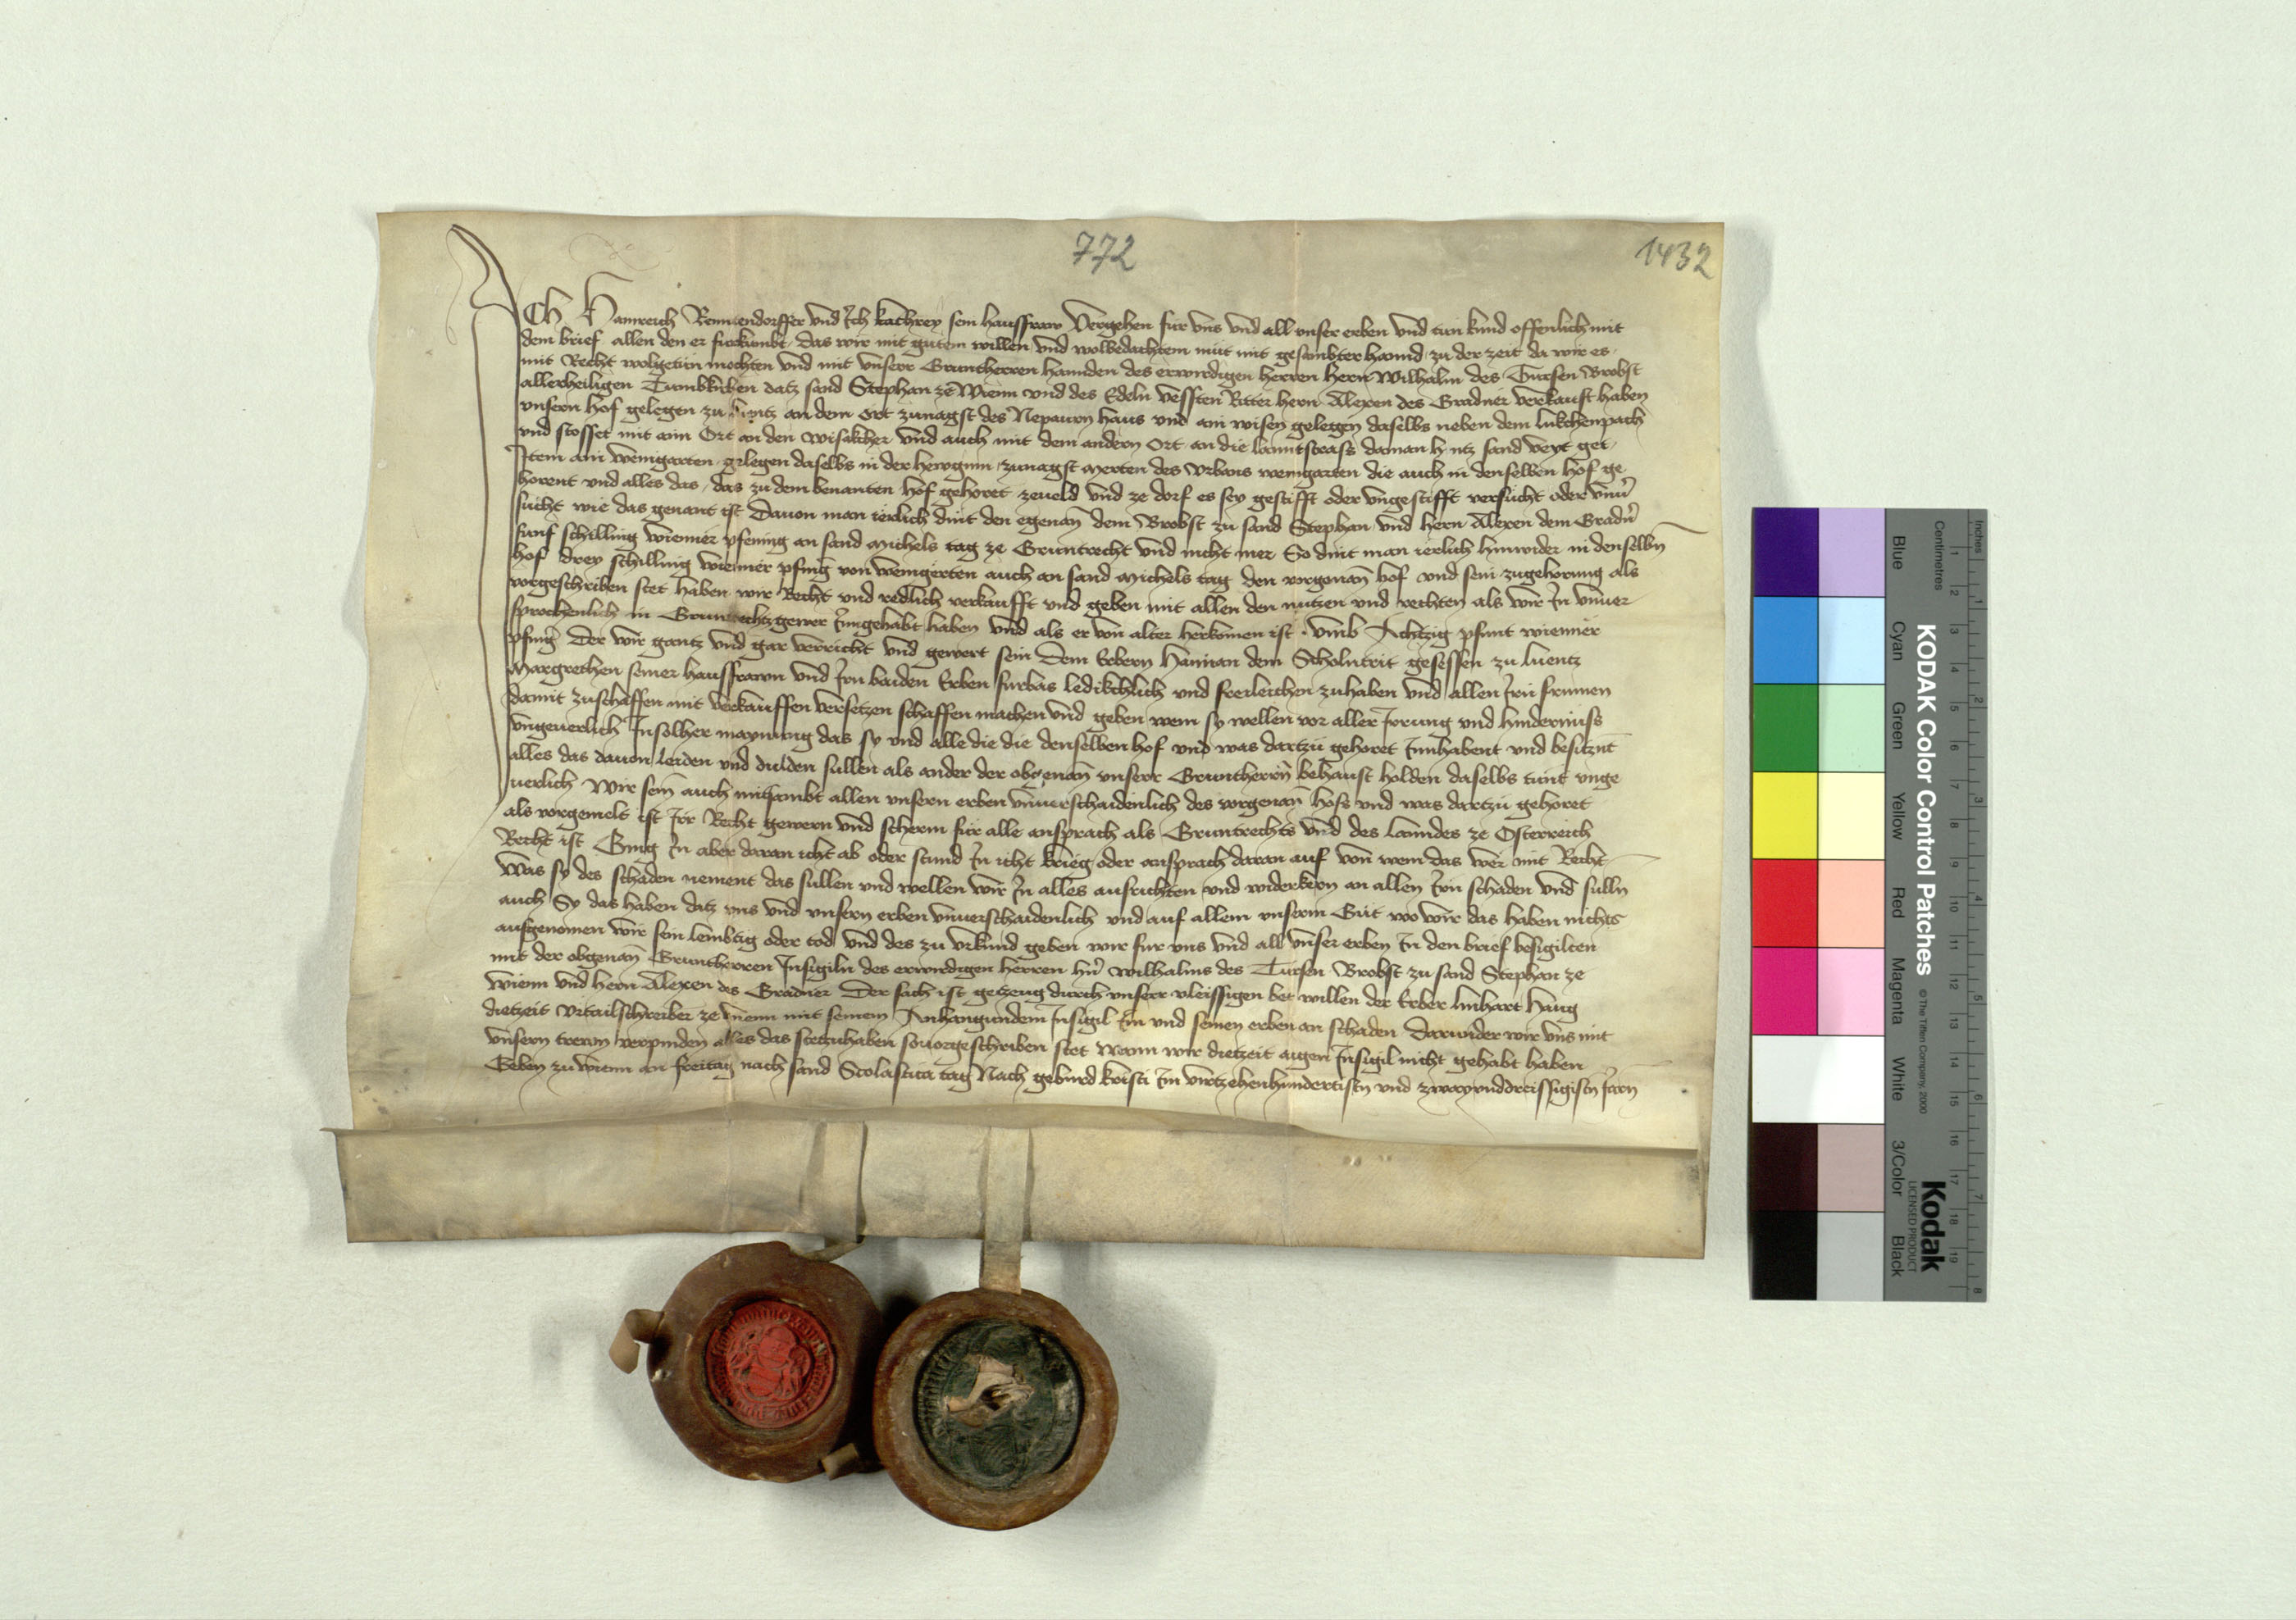 772
1432
Ich Hainreich Rennendorffer vnd Ich kathrey sein hausfraw Veriehen fur vns vnd all vnser erben vnd tun kund offenlich mit
dem brief allen den er furkumbt das wir mit gutem willen vnd wolbedachtem mut mit gesambter hannd zu der zeit da wir es
mit Recht wolgetun mochten vnd mit vnserr Gruntherren hannden des erwirdigen herren hern Wilhalm des Tursen Brobst
allerheiligen Tumbkirchen datz sand Stephan ze Wienn vnd des Edeln vessten Ritter hern Alexen des Gradner verkauft haben
vnsern hof gelegen zu Luntz an dem Ort zunagst des Nepawrn haus vnd ain wisen gelegen daselbs neben dem lukchenpach
vnd stosset mit aim Ort an den wisakcher vnd auch mit dem andern Ort an die lanntstrass daman hintz sand veyt get
Item ain weingarten gelegen daselbs in der hewginn zunagst merten des vrbans weingarten die auch in denselben hof ge
horent vnd alles das das zu dem benanten hof gehoret zeueld vnd ze dorf es sey gestifft oder vngestifft versucht oder vnuer
sucht wie das genant ist Dauon man ierlich dint den egenan dem Brobst zu sand Stephan vnd hern Alexen dem Gradner
funf schilling wienner pfening an sand michels tag ze Gruntrecht vnd nicht mer So dint man ierlich hinwider in denselbn
hof drey schilling wienner pfing von weingerten auch an sand michels tag den vorgenan hof vnd sein zugehorung als
vorgeschriben stet haben wir Recht vnd redlich verkaufft vnd geben mit allen den nutzen vnd rechten als wir In vnuer
sprochenlich in Gruntrechtzgewer Inngehabt haben vnd als er von alter herkomen ist vmb Achtzig phunt wienner
pfing Der wir gantz vnd gar verricht vnd gewert sein Dem Erbern hannan dem Scholntrit gesessen zu luentz
margrethen seiner hausfrawn vnd Irn baiden Erben furbas ledikchlich vnd freileichen zuhaben vnd allen Irn frumen
damit zuschaffen mit verkauffen versetzen schaffen machen vnd geben wem sy wellen vor aller Irrung vnd hindernuss
vngeuerlich In solher maynung das sy vnd alle die die denselben hof vnd was dartzu gehoret Innhabent vnd besitznt
alles das dauon leiden vnd dulden sullen als ander der obgenan vnserr Gruntherrn behaust holden daselbs tunt vnge
uerlich Wir sein auch mitsambt allen vnsern erben vnuerschaidenlich des vorgenan hofs vnd was dartzu gehoret
als vorgemelt ist Irr Recht gewern vnd scherm fur alle ansprach als Gruntrechts vnd des lanndes ze Osterreich
Recht ist Ging In aber daran icht ab oder stund In icht krieg oder ansprach daran auf von wem das wer mit Recht
Was sy des schaden nement das sullen vnd wellen wir In alles ausrichten vnd widerkern an allen Irn schaden vnd sulln
auch Sy das haben datz vns vnd vnsern erben vnuerschaidenlich vnd auf allem vnserm Gut wo wir das haben nichts
ausgenomen wir sein lembtig oder tod vnd des zu vrkund geben wir fur vns vnd all vnser erben In den brief besigilten
mit der obgenan Gruntherren Insigiln des erwirdigen herren hern wilhalms des Tursen Brobst zu sand Stephan ze
wienn vnd hern Alexen des Gradner Der sach ist getzeug durch vnserr vleissigen bet willen der Erber linhart haug
dietzeit vrtailschreiber ze wienn mit seinem Anhangundem Insigil Im vnd seinen erben an schaden Darunder wir vns mit
vnsern trewn verpinden alles das stetzuhaben souorgeschriben stet wann wir dietzeit aigen Insigil nicht gehabt haben
Geben zu wienn an freitag nach sand Scolastica tag Nach gebürd kristi Im virtzehenhundertistn vnd zwayvnddreissigistn Jarn
KODAK Color Control Patches
© The Tiffen Company, 2000
Kodak
LICENSED PRODUCT
Inches
Centimetres
Blue
Cyan
Green
Yellow
Red
Magenta
White
3/Color
Black